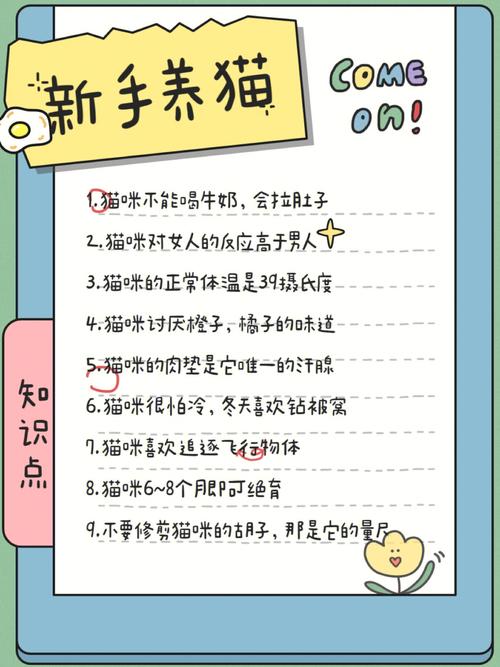 新手养猫
COME
on!
1.猫咪不能喝牛奶，会拉肚子
2.猫咪对女人的反应高于男人
3.猫咪的正常体温是39摄氏度
4.猫咪讨厌橙子，橘子的味道
5.猫咪的肉垫是它唯一的汗腺
6.猫咪很怕冷，冬天喜欢钻被窝
7.猫咪喜欢追逐飞行物体
8.猫咪6~8个月即可绝育
9.不要修剪猫咪的胡子，那是它的量尺
知识点